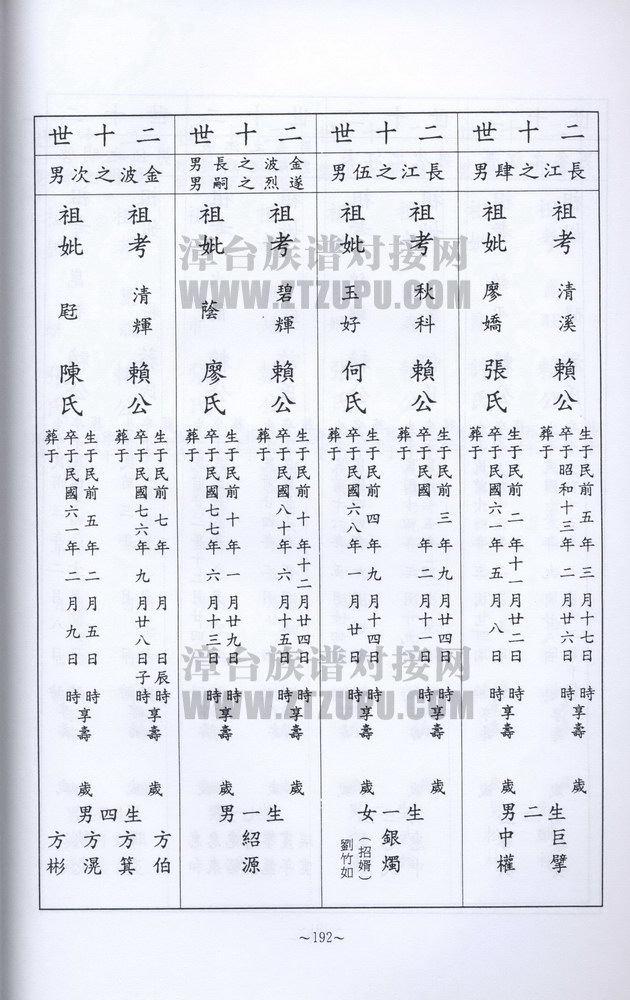 二十世
長江之肆男
祖考 清溪 賴公
生于民前 五年 三月十七日 時
卒于昭和十三年 二月廿六日 時 享壽 歲
葬于
祖妣 廖嬌 張氏
生于民前 二年十一月廿二日 時
卒于民國六一年 五月 八日 時 享壽 歲
葬于
生二男
巨擘
中權
二十世
長江之伍男
祖考 秋科 賴公
生于民前 三年 九月廿四日 時
卒于民國 年 二月十一日 時 享壽 歲
葬于
祖妣 玉好 何氏
生于民前 四年 九月十四日 時
卒于民國六八年 一月 廿日 時 享壽 歲
葬于
生一女
銀燭
(招婿)
劉竹如
二十世
金波之長男
遂烈之嗣男
祖考 碧輝 賴公
生于民前 十年十二月廿四日 時
卒于民國八十年 六月十五日 時 享壽 歲
葬于
祖妣 蔭 廖氏
生于民前 十年 一月廿九日 時
卒于民國七七年 六月十三日 時 享壽 歲
葬于
生一男
紹源
二十世
金波之次男
祖考 清輝 賴公
生于民前 七年 月 日辰時
卒于民國七六年 九月廿八日子時 享壽 歲
葬于
祖妣 陳氏
生于民前 五年 二月 五日 時
卒于民國六一年 二月 九日 時 享壽 歲
葬于
生四男
方伯
方箕
方滉
方彬
~192~
漳台族谱对接网
WWW.ZTZUPU.COM
漳台族谱对接网
WWW.ZTZUPU.COM